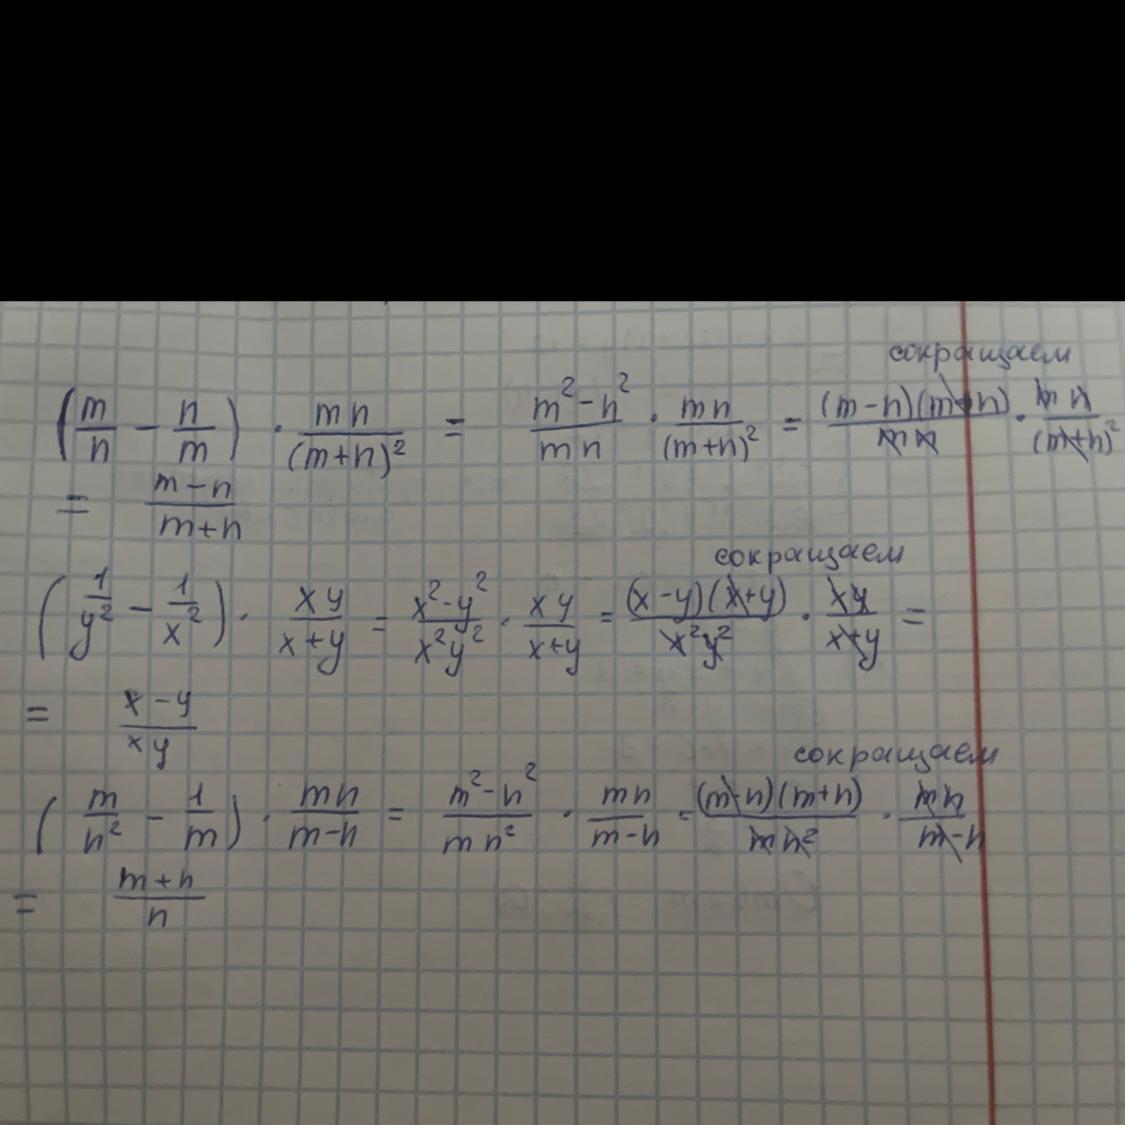 сокращаем
(m/n − n/m) · mn/(m+n)² = m²−n²/mn · mn/(m+n)² = (m−n)(m+n)/mn · mn/(m+n)²
= m−n/m+n
сокращаем
(1/y² − 1/x²) · xy/x+y = x²−y²/x²y² · xy/x+y = (x−y)(x+y)/x²y² · xy/x+y =
= x−y/xy
сокращаем
(m/n² − 1/m) · mn/m−n = m²−n²/mn² · mn/m−n = (m−n)(m+n)/mn² · mn/m−n
= m+n/n